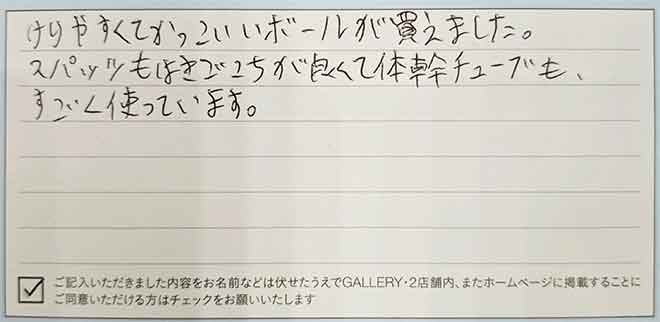 けりやすくてかっこいいボールが買えました。
スパッツもはきごこちが良くて体幹チューブも、
すごく使っています。
ご記入いただきました内容をお名前などは伏せたうえでGALLERY・2店舗内、またホームページに掲載することに
ご同意いただける方はチェックをお願いいたします